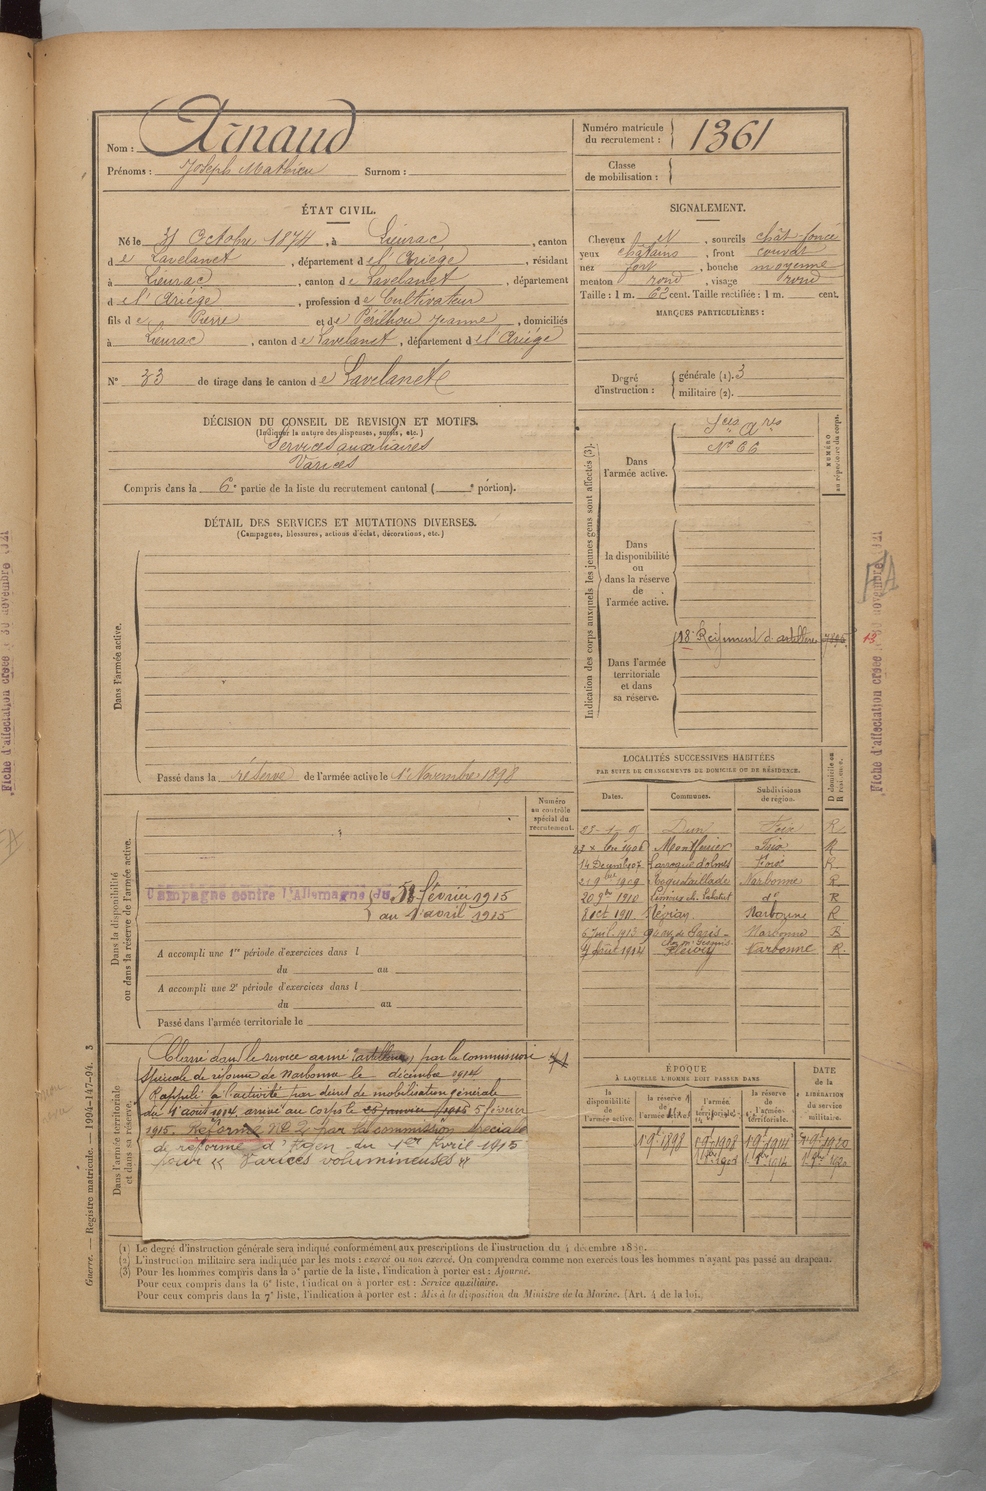 Nom : Arnaud
Prénoms : Joseph Mathieu Surnom :
Numéro matricule
du recrutement : 1361
Classe
de mobilisation :
ÉTAT CIVIL.
Né le 31 Octobre 1874, à Lieurac, canton
de Lavelanet, département de l'Ariège, résidant
à Lieurac, canton de Lavelanet, département
de l'Ariège, profession de Cultivateur
fils de Pierre et de Périlhou Jeanne, domiciliés
à Lieurac, canton de Lavelanet, département de l'Ariège
N° 33 de tirage dans le canton de Lavelanet
SIGNALEMENT.
Cheveux et, sourcils chât-foncé
yeux châtains, front couvert
nez fort, bouche moyenne
menton rond, visage rond
Taille : 1 m. 62 cent. Taille rectifiée : 1 m. cent.
MARQUES PARTICULIÈRES :
Degré
d'instruction :
générale (1). 3
militaire (2).
DÉCISION DU CONSEIL DE REVISION ET MOTIFS.
(Indiquer la nature des dispenses, sursis, etc.)
Services auxiliaires
Varices
Compris dans la 6e partie de la liste du recrutement cantonal ( e portion).
DÉTAIL DES SERVICES ET MUTATIONS DIVERSES.
(Campagnes, blessures, actions d'éclat, décorations, etc.)
Dans l'armée active.
Passé dans la réserve de l'armée active le 1er Novembre 1898
Indication des corps auxquels les jeunes gens sont affectés (3).
NUMÉRO
au répertoire du corps.
Dans
l'armée active.
Sces Ares
N° 66
Dans
la disponibilité
ou
dans la réserve
de
l'armée active.
18e Régiment d'artillerie
13
Dans l'armée
territoriale
et dans
sa réserve.
Fiche d'affectation créée le 30 novembre 1921
FA
LOCALITÉS SUCCESSIVES HABITÉES
PAR SUITE DE CHANGEMENTS DE DOMICILE OU DE RÉSIDENCE.
D domicile ou
R résidence.
Dates. Communes. Subdivisions
de région.
Dun Foix R
1906 Montferrier Foix R
14 Décemb 07 Larroque d'olmes Foix R
1909 Coquetaillade Narbonne R
20 9bre 1910 do R
8 oct 1911 Névian Narbonne R
1913 Narbonne R
4 août 1914 Fleury Narbonne R
Numéro
au contrôle
spécial du
recrutement.
Dans la disponibilité
ou dans la réserve de l'armée active.
Campagne contre l'Allemagne du 5 Février 1915
au 1er avril 1915
A accompli une 1re période d'exercices dans l
du au
A accompli une 2e période d'exercices dans l
du au
Passé dans l'armée territoriale le
Dans l'armée territoriale
et dans sa réserve.
Classé dans le service armé (artillerie) par la commission
spéciale de réforme de Narbonne le décembre 1914
Rappelé à l'activité par décret de mobilisation générale
du 1er août 1914 arrivé au corps le 25 janvier 1915 5 février
1915. Réformé N° 2 par la commission spéciale
de réforme d'Agen du 1er Avril 1915
pour « Varices volumineuses »
ÉPOQUE
À LAQUELLE L'HOMME DOIT PASSER DANS
DATE
de la
LIBÉRATION
du service
militaire.
la
disponibilité
de
l'armée active.
la réserve
de
l'armée active.
l'armée
territoriale.
la réserve
de
l'armée
territoriale.
1er 9bre 1898
1er 9bre 1908
1er 9bre 1914
1er 9bre 1920
Guerre. — Registre matricule. — 1994-147-94. 3
(1) Le degré d'instruction générale sera indiqué conformément aux prescriptions de l'instruction du 4 décembre 1889.
(2) L'instruction militaire sera indiquée par les mots : exercé ou non exercé. On comprendra comme non exercés tous les hommes n'ayant pas passé au drapeau.
(3) Pour les hommes compris dans la 5e partie de la liste, l'indication à porter est : Ajourné.
Pour ceux compris dans la 6e liste, l'indication à porter est : Service auxiliaire.
Pour ceux compris dans la 7e liste, l'indication à porter est : Mis à la disposition du Ministre de la Marine. (Art. 4 de la loi.)